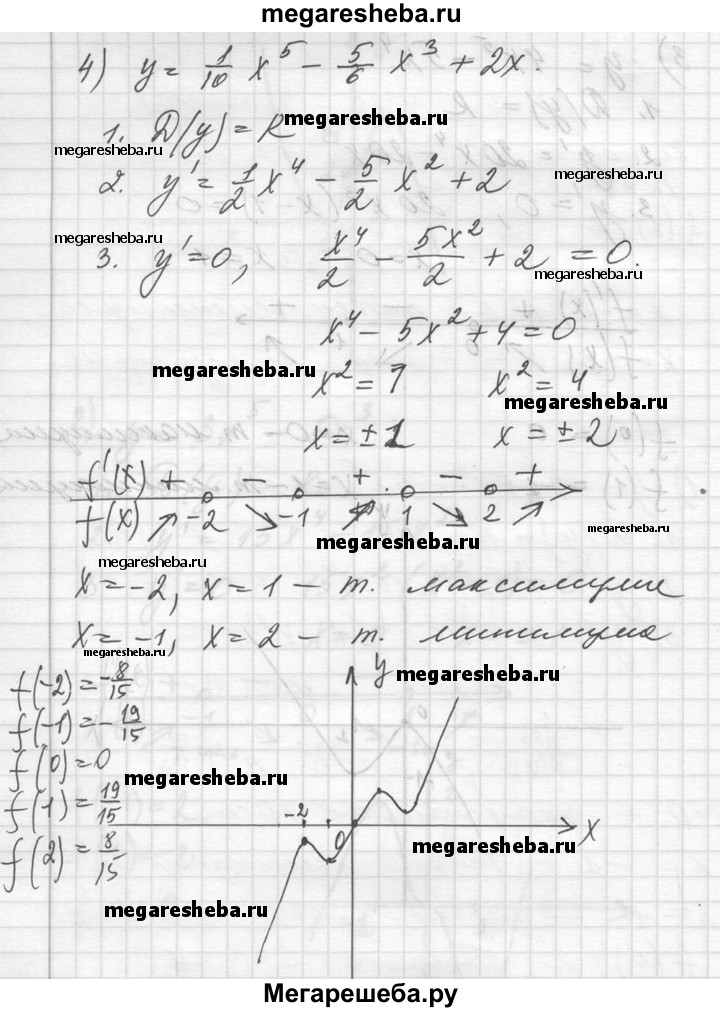 megaresheba.ru
4) y = 1/10 x^5 - 5/6 x^3 + 2x.
1. D(y) = R megaresheba.ru
megaresheba.ru
2. y' = 1/2 x^4 - 5/2 x^2 + 2 megaresheba.ru
megaresheba.ru
3. y' = 0, x^4/2 - 5x^2/2 + 2 = 0.
megaresheba.ru
x^4 - 5x^2 + 4 = 0
megaresheba.ru
x^2 = 1 x^2 = 4
megaresheba.ru
x = ±1 x = ±2
f'(x) + - + - +
f(x) ↗ -2 ↘ -1 ↗ 1 ↘ 2 ↗
megaresheba.ru
megaresheba.ru
megaresheba.ru
x = -2, x = 1 - т. максимума
x = -1, x = 2 - т. минимума
megaresheba.ru
f(-2) = -8/15
y megaresheba.ru
f(-1) = -19/15
f(0) = 0
megaresheba.ru
f(1) = 19/15
-2 0 x
f(2) = 8/15
megaresheba.ru
megaresheba.ru
Мегарешеба.ру